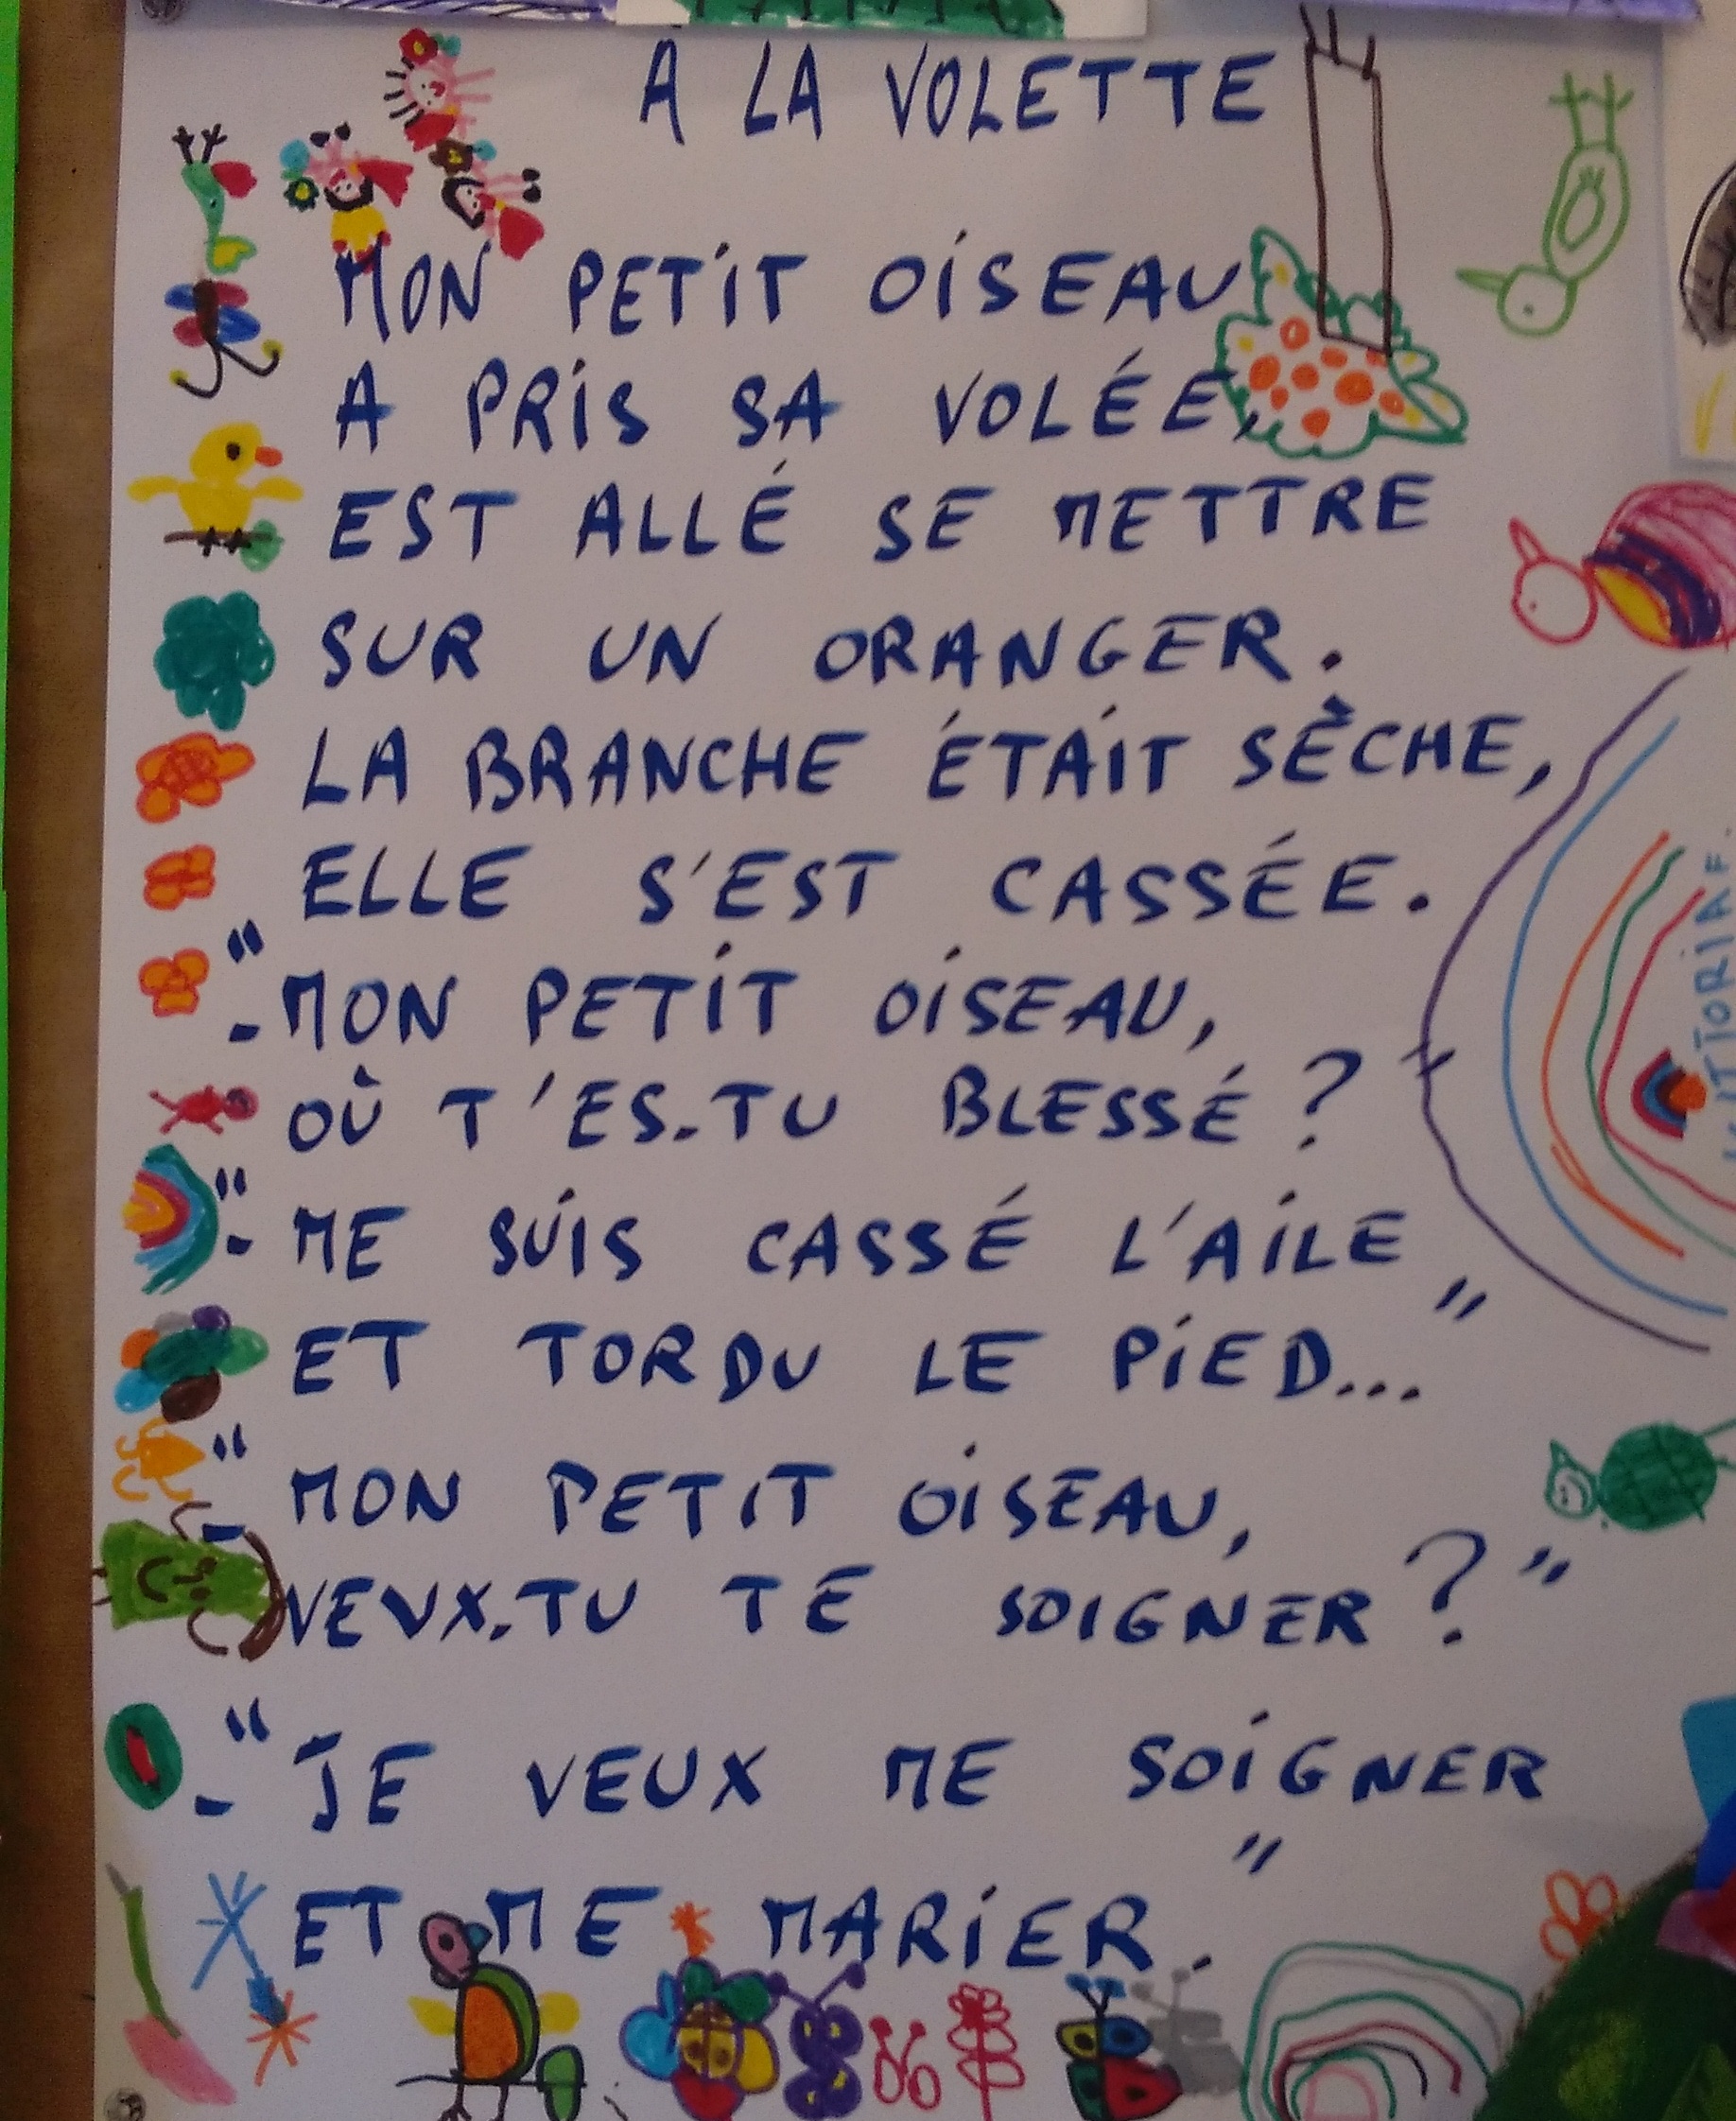 À LA VOLETTE
MON PETIT OISEAU
A PRIS SA VOLÉE,
EST ALLÉ SE METTRE
SUR UN ORANGER.
LA BRANCHE ÉTAIT SÈCHE,
ELLE S'EST CASSÉE.
-"MON PETIT OISEAU,
OÙ T'ES-TU BLESSÉ ?
-"ME SUIS CASSÉ L'AILE
ET TORDU LE PIED..."
-"MON PETIT OISEAU,
VEUX-TU TE SOIGNER ?"
-"JE VEUX ME SOIGNER
ET ME MARIER."